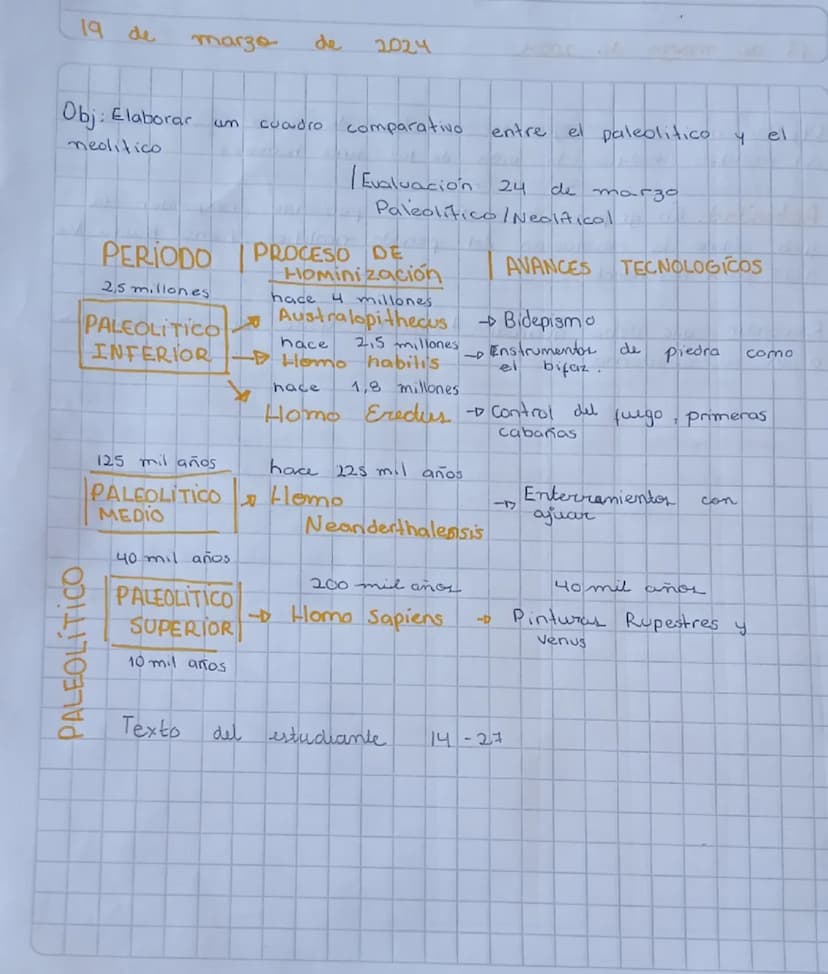 19 de marzo de 2024
Obj: Elaborar un cuadro comparativo entre el paleolitico y el
neolitico
| Evaluación 24 de marzo
Paleolítico / Neolitico |
PERÍODO | PROCESO DE Hominización | AVANCES TECNOLOGÍCOS
2,5 millones
PALEOLÍTICO
INFERIOR
hace 4 millones
Australopithecus → Bidepismo
hace 2,5 millones
Homo habilis → Enstrumentos de piedra como
el bifaz.
hace 1,8 millones
Homo Eredus → Control del fuego, primeras
cabañas
125 mil años
PALEOLÍTICO
MEDIO
hace 225 mil años
→ Homo
Neanderthalensis
→ Enterramientos con
ajuar
40 mil años
PALEOLÍTICO
SUPERIOR
200 mil años 40 mil años
→ Homo Sapiens → Pinturas Rupestres y
venus
10 mil años
PALEOLÍTICO
Texto del estudiante 14 - 27